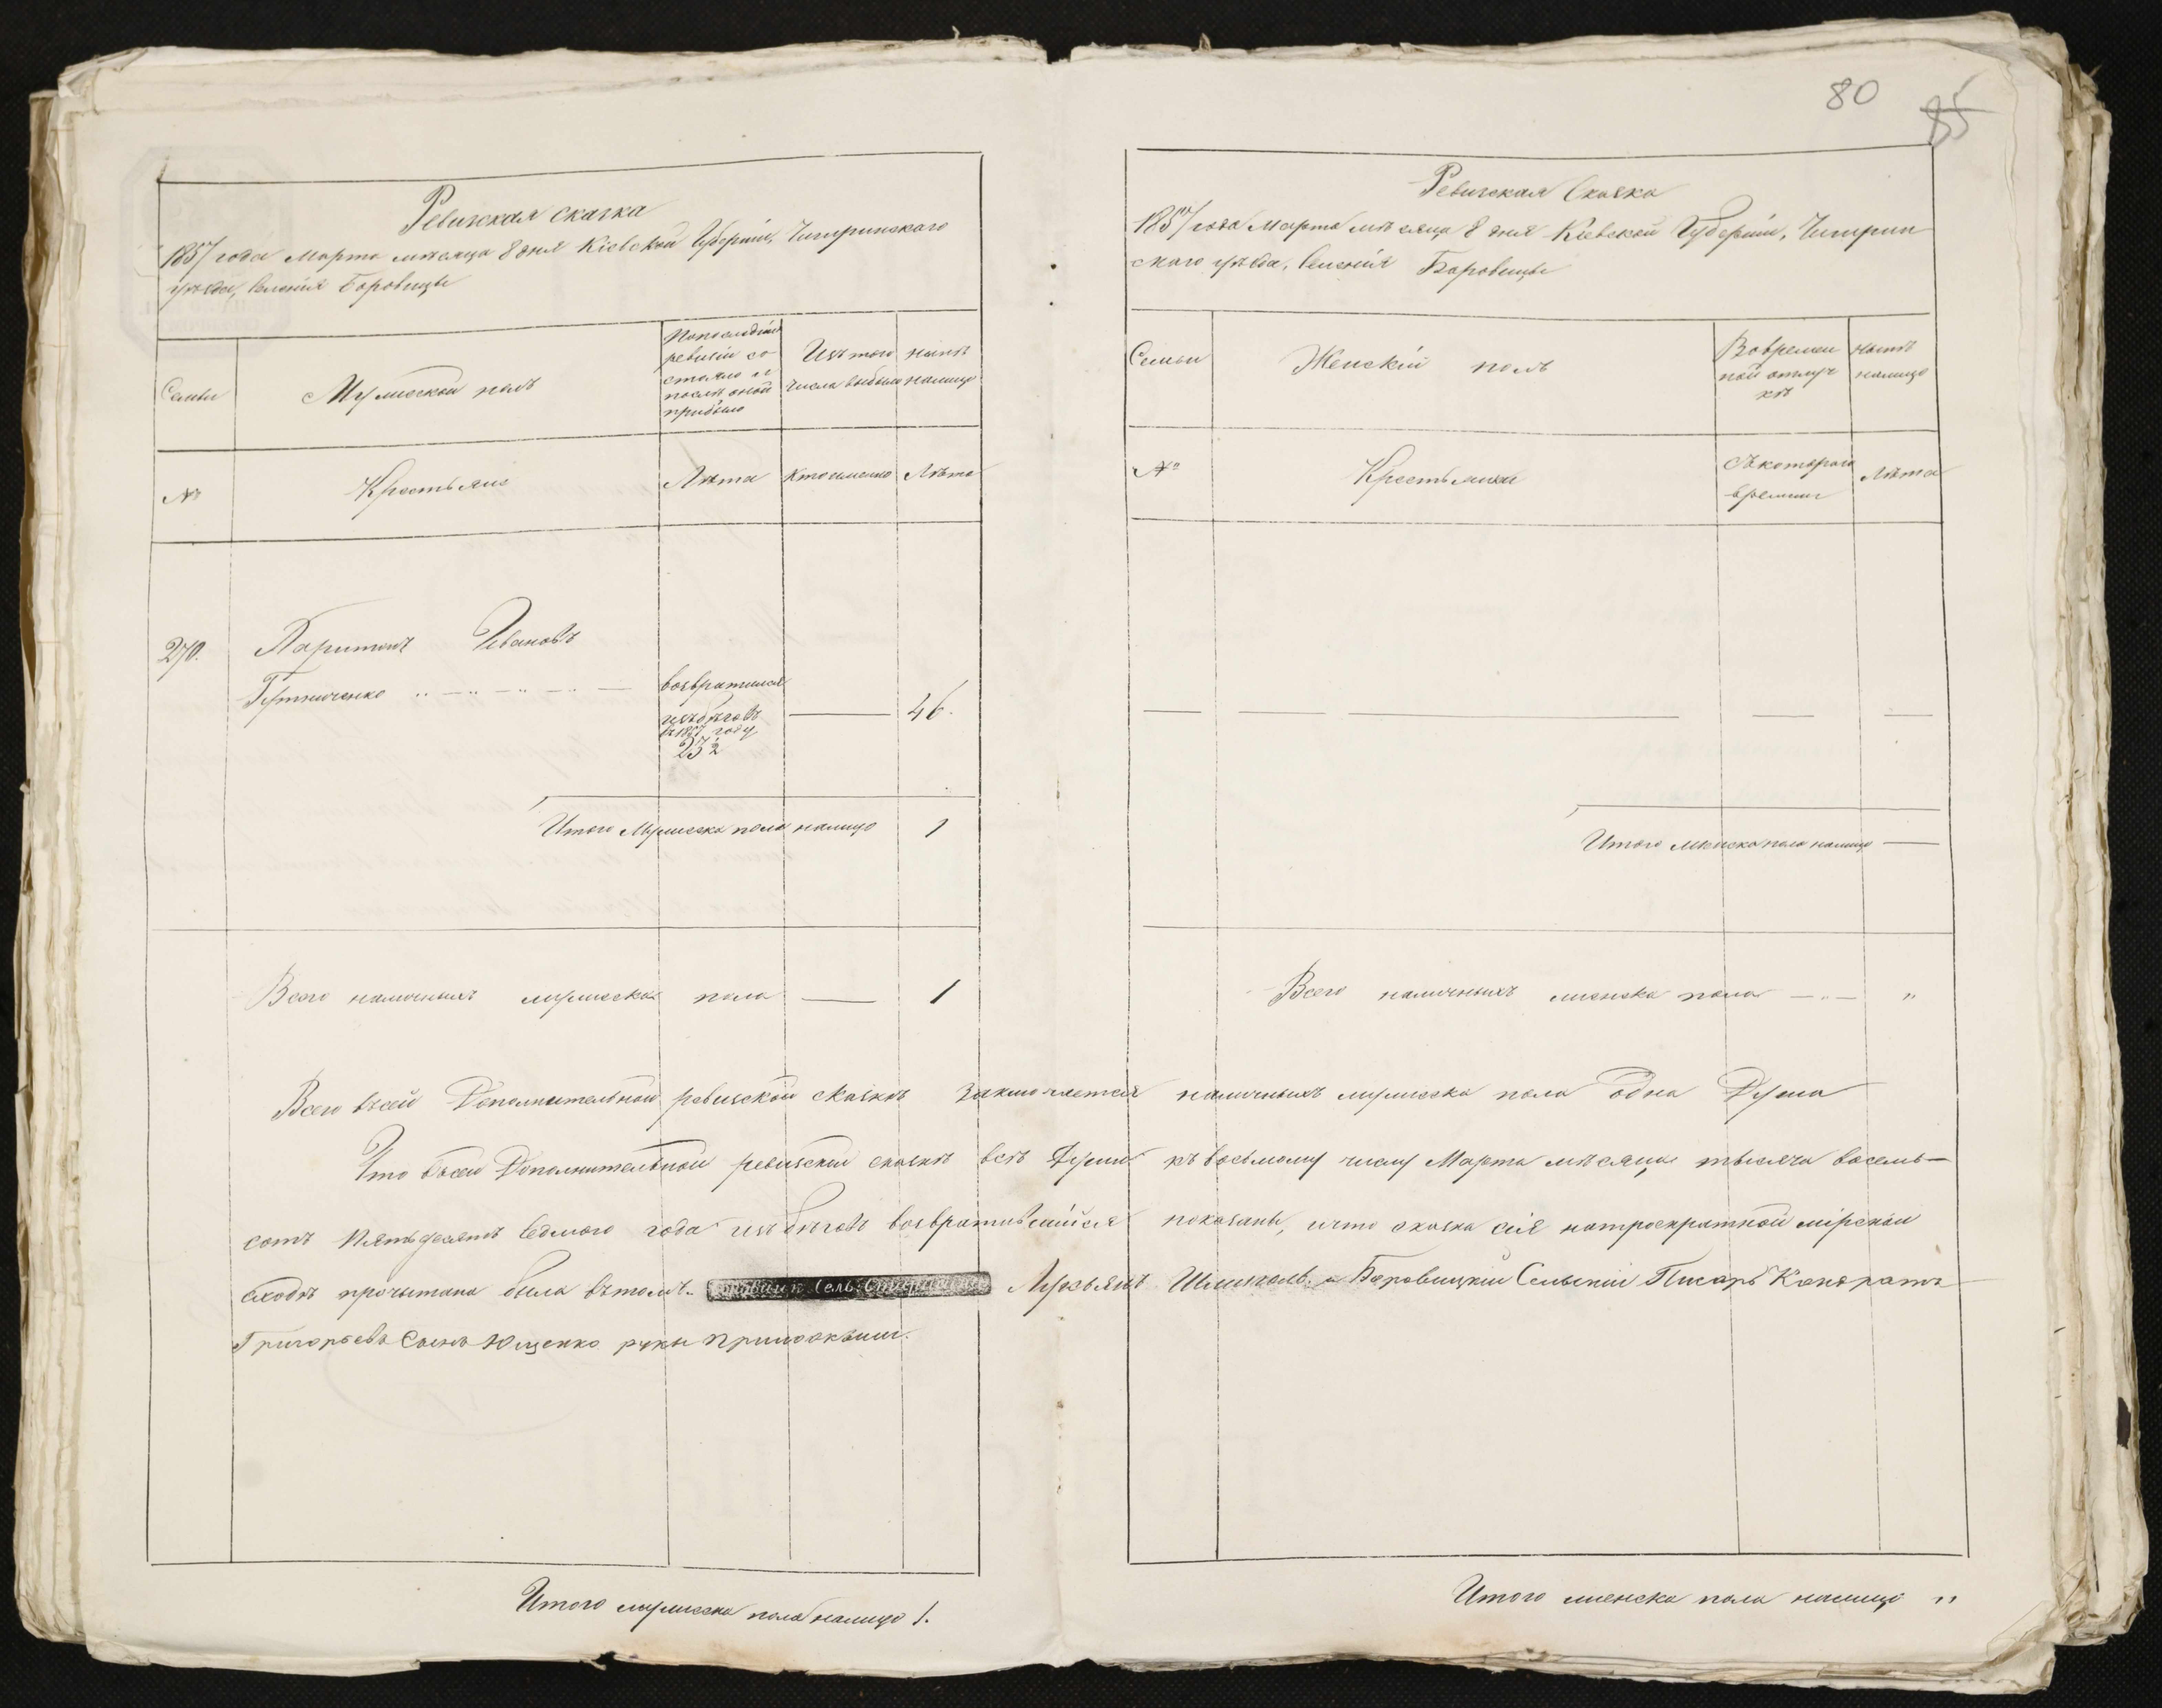 80
85
Ревизская сказка
1857 года Марта мѣсяца 8 дня Кіевской Губерніи, Чигиринскаго
уѣзда, Селенія Боровицы
Семьи
Мужескій полъ
Попослѣдней
ревизіи со-
стояло и
послѣ оной
прибыло
Изъ того
числа выбыло
нынѣ
налицо
№
Крестьяне
Лѣта
Кто именно
Лѣта
270.
Харитонъ Ивановъ
возвратился
изъ бѣговъ
въ 1857 году
23½
46.
Итого Мужеска пола налицо 1
Всего наличныхъ мужеска пола — 1
Ревизская Сказка
1857 года Марта мѣсяца 8 дня Кіевской Губерніи, Чигирин
скаго уѣзда, Селенія Боровицы
Семьи
Женскій полъ
Вовремен
ной отлуч
кѣ
нынѣ
налицо
№
Крестьянки
Съ котораго
времени
Лѣта
Итого женска пола налицо —
Всего наличныхъ женска пола — „ — „
Всего въсей Дополнительной ревизской сказкѣ заключается наличныхъ мужеска пола одна Душа
Что въсей Дополнительной ревизской сказкѣ всѣ Души къ восьмому числу Марта мѣсяца тысяча восемь-
сотъ Пятьдесятъ Седмого года изъ бѣговъ возвратившійся показаны, и что сказка сія натроекратной мірской
сходѣ прочытана была вътомъ Сель: Боровицкій Сельскій Писарь Кондратъ
Григорьевъ Сынъ Ющенко руки приложили.
Итого мужеска пола налицо 1.
Итого женска пола налицо „